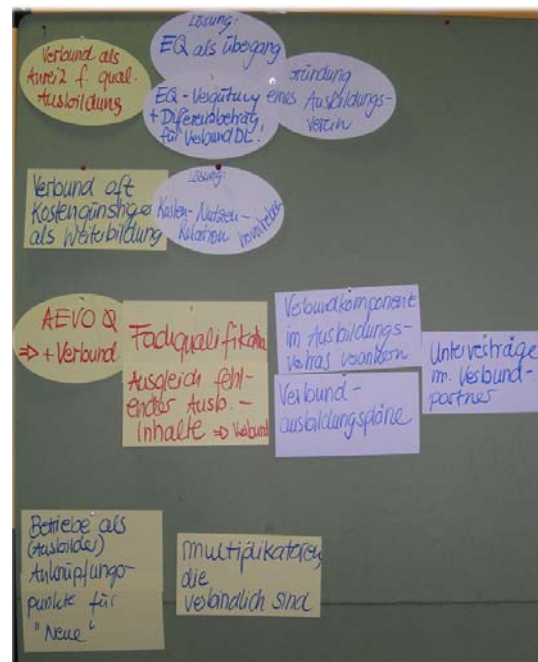 Verbund als
Anreiz f. qual.
Ausbildung
Lösung:
EQ als Übergang
EQ-Vergütung
+ Differenzbetrag
für Verbund DL!
Gründung
eines Ausbildungs-
verein
Verbund oft
Kostengünstiger
als Weiterbildung
Lösung:
Kosten-Nutzen-
Relation
AEVO Q
⇒ + Verbund
Fachqualifikation
Ausgleich fehl-
ender Ausb.-
Inhalte ⇒ Verbund
Verbundkomponente
im Ausbildungs-
vertrag verankern
Verbund-
ausbildungspläne
Unterverträge
m. Verbund-
partner
Betriebe als
(Ausbilder)
Anknüpfungs-
punkte für
"Neue"
Multiplikatoren,
die
verbindlich sind